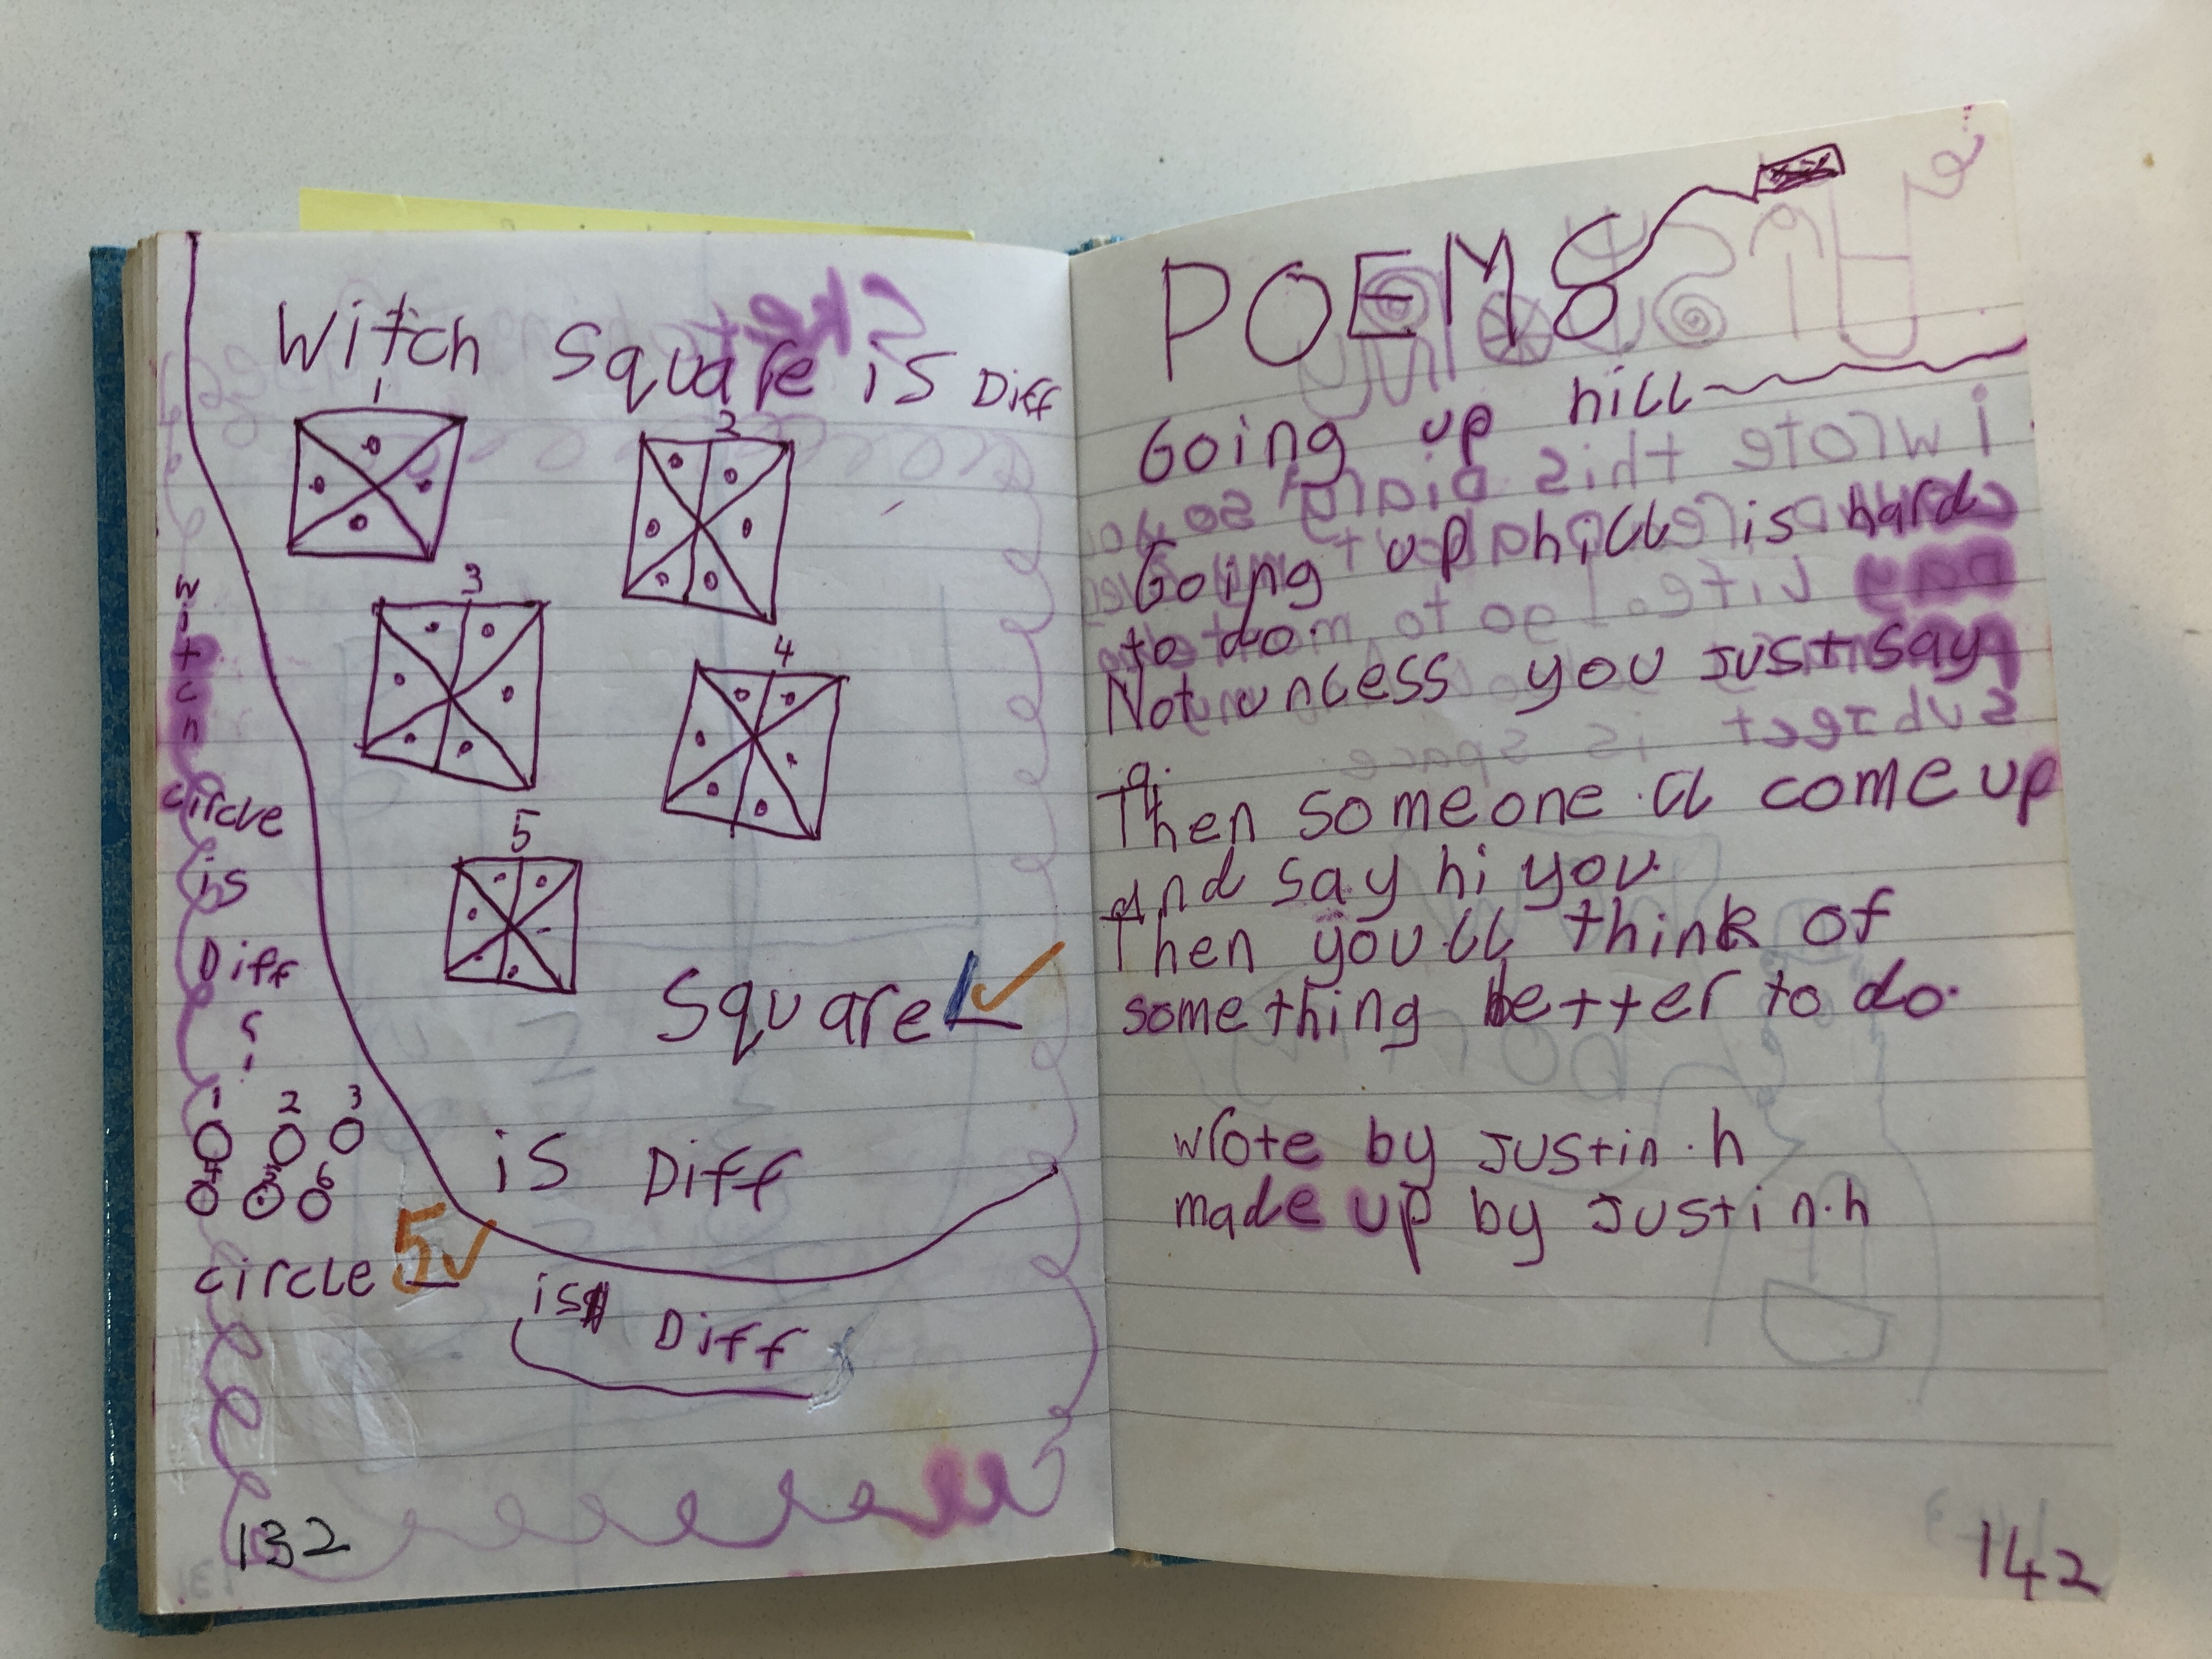 Witch square is Diff
1
2
3
4
5
Square 1 ✓
is Diff
witch
circle
is
Diff
?
1 2 3
4 5 6
circle 5 ✓
is Diff
132
POEMS
Going up hill
Going up hill is hard
to do.
Not unless you just say
Then someone.ll come up
and say hi you.
Then you.ll think of
something better to do.
wrote by Justin.h
made up by Justin.h
142